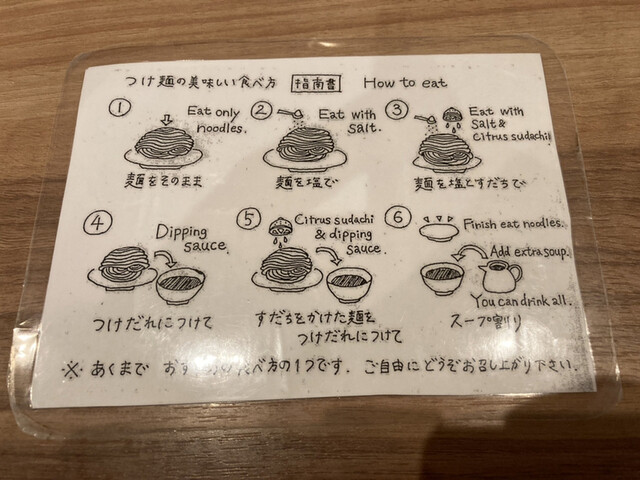 つけ麺の美味しい食べ方 指南書 How to eat
① Eat only
noodles.
麺をそのまま
② Eat with
salt.
麺を塩で
③ Eat with
Salt &
Citrus sudachi
麺を塩とすだちで
④ Dipping
sauce
つけだれにつけて
⑤ Citrus sudachi
& dipping
sauce.
すだちをかけた麺を
つけだれにつけて
⑥ Finish eat noodles.
Add extra soup.
You can drink all.
スープ割り
※ あくまで おすすめの食べ方の1つです. ご自由にどうぞお召し上がり下さい.